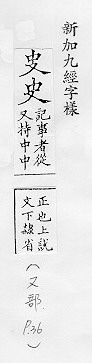 新加九經字樣
㕜史
記事者從
又持中中
正也上說
文下隸省
(又部 P.36)